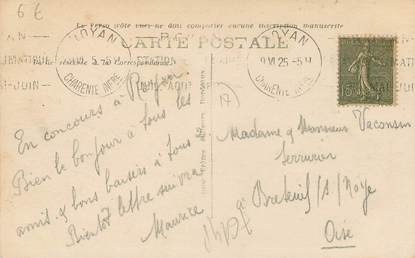 6 €
Le Verso prête chez-ne doit comporter aucune inscription manuscrite
CARTE POSTALE
ROYAN
CHARENTE INFRE
ROYAN
9 VI 25
CHARENTE INFRE
Correspondance
15
17
En concours à Royan
Bien le bonjour à tous les
amis, & bons baisers à tous
Bientôt lettre suivra
Maurice
Madame & Monsieur Vaconsin
Serrurier
Breteuil s/ Noye
Oise